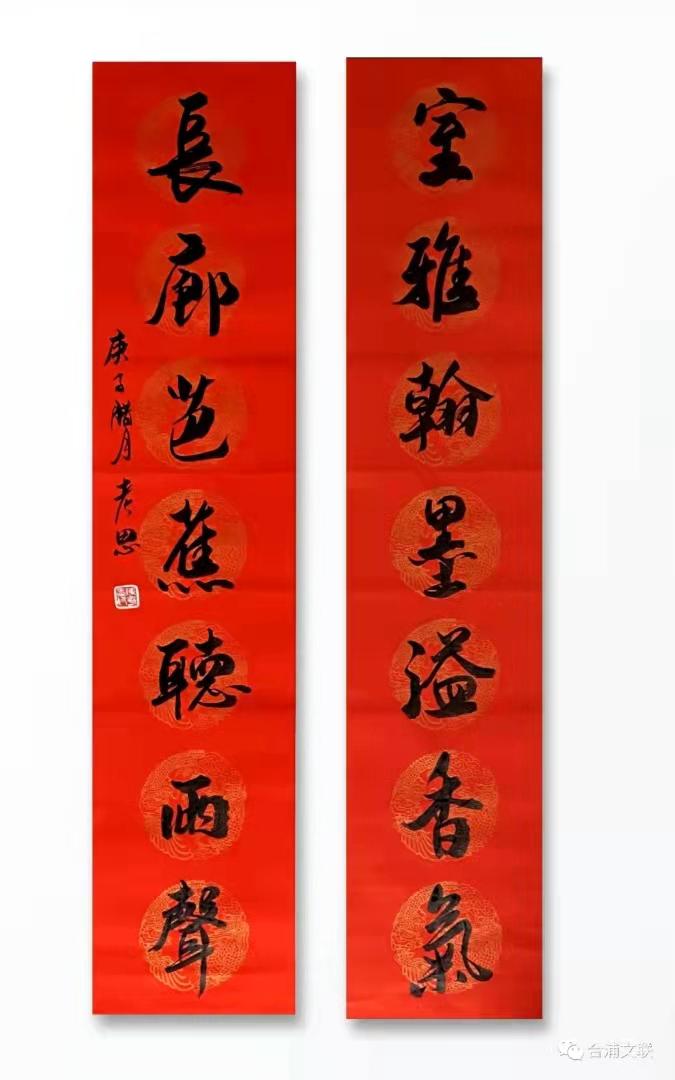 室雅翰墨溢香氣
長廊芭蕉聽雨聲
庚子腊月 老思
台浦文联